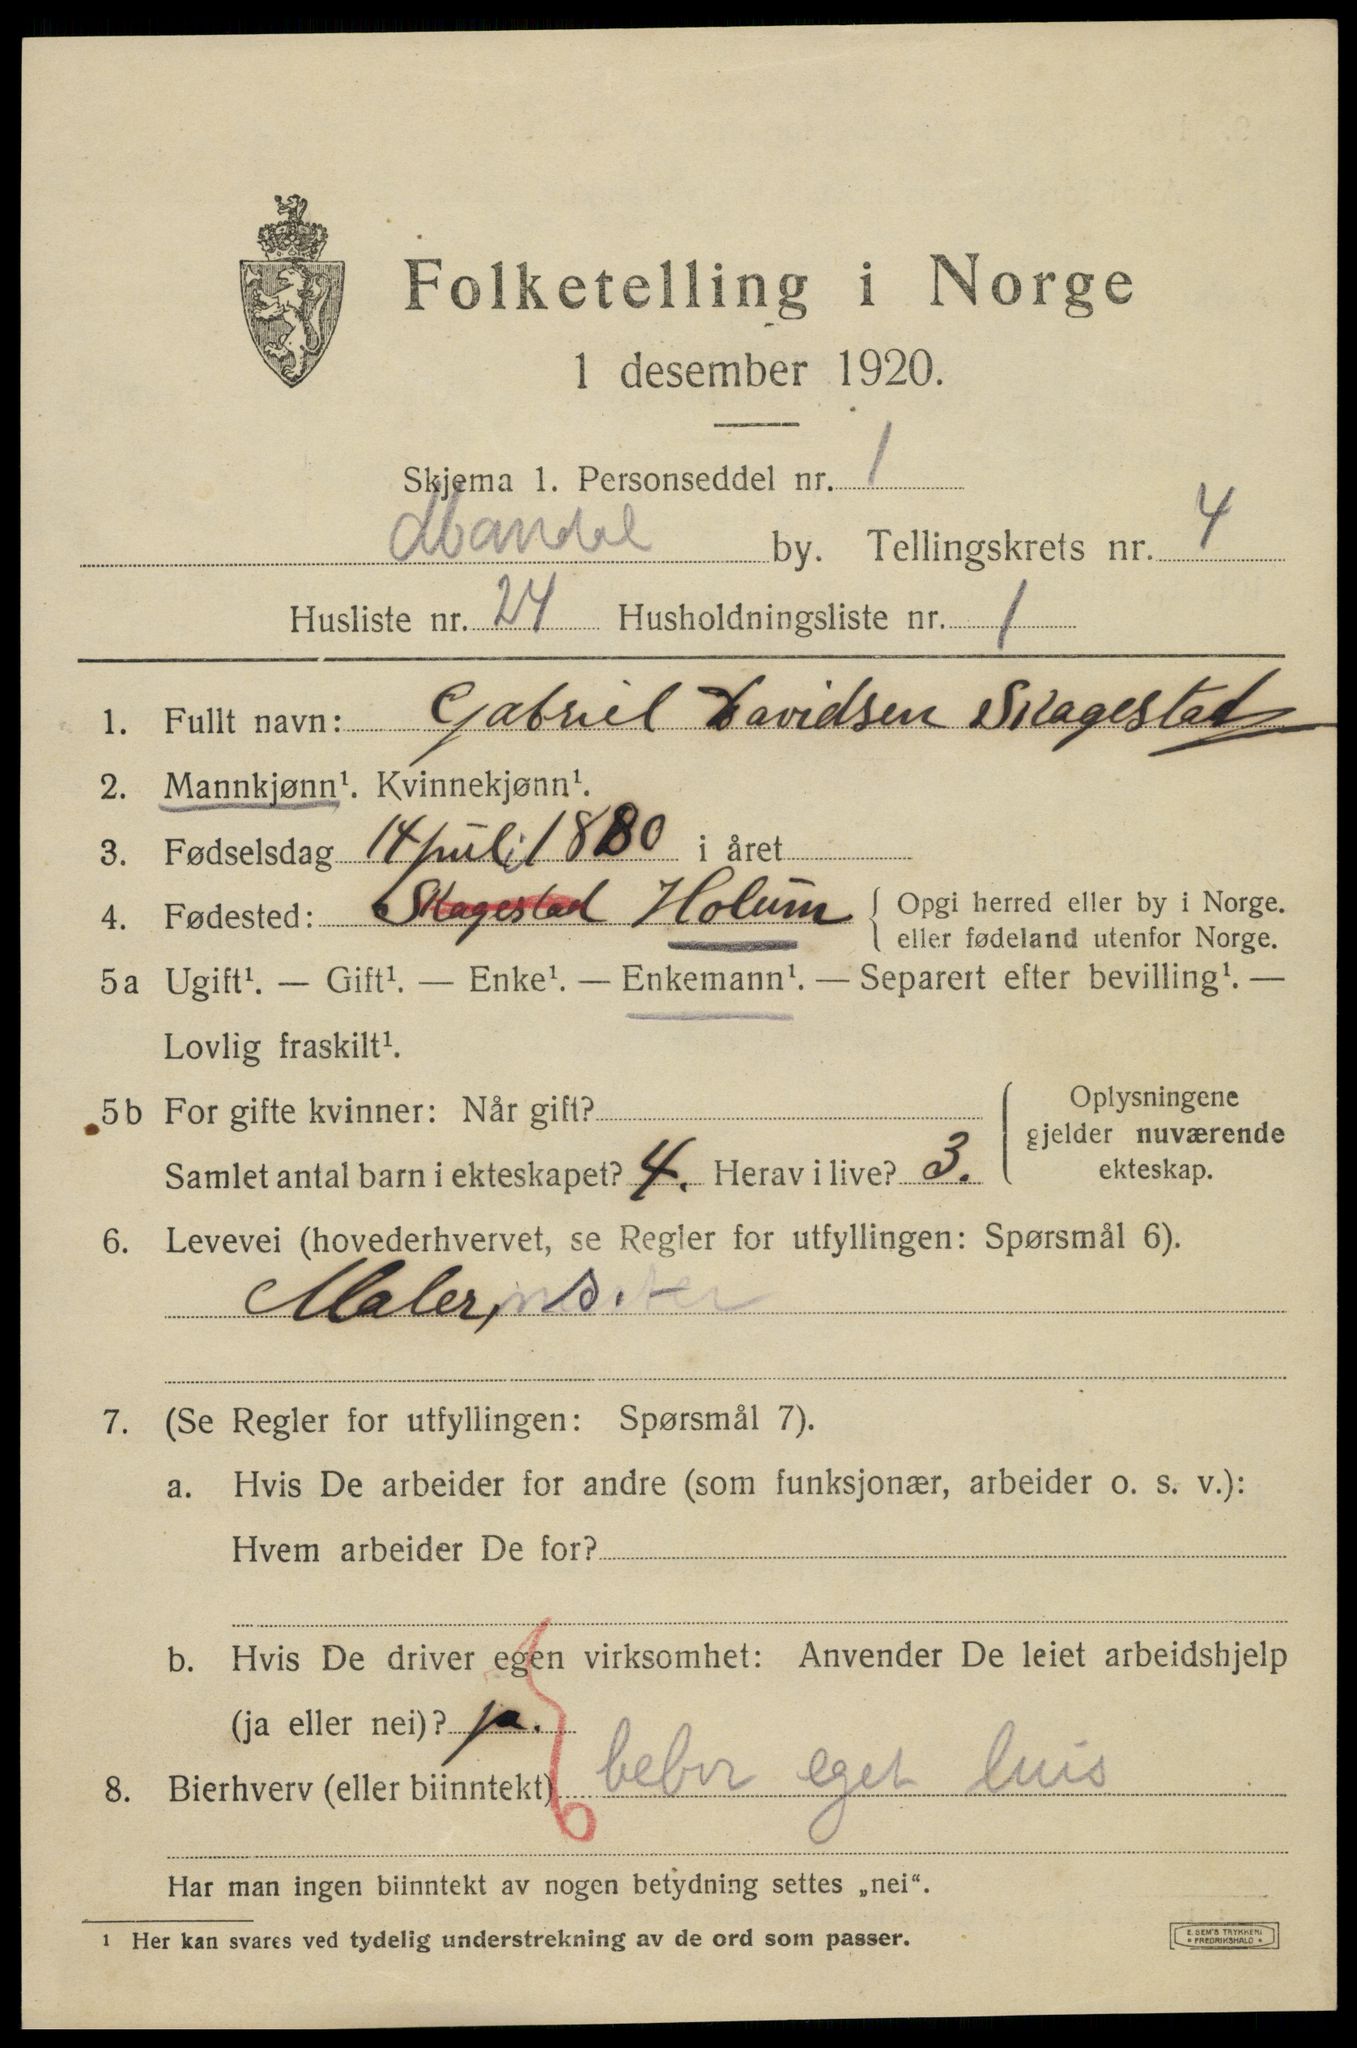 Folketelling i Norge
1 desember 1920.
Skjema 1. Personseddel nr. 1
Mandal by. Tellingskrets nr. 4
Husliste nr. 24 Husholdningsliste nr. 1
1. Fullt navn: Gabriel Davidsen Skagestad
2. Mannkjønn¹. Kvinnekjønn¹.
3. Fødselsdag 14 juli 1880 i året
4. Fødested: Skagestad Holum { Opgi herred eller by i Norge.
eller fødeland utenfor Norge.
5a Ugift¹. — Gift¹. — Enke¹. — Enkemann¹. — Separert efter bevilling¹. —
Lovlig fraskilt¹.
5b For gifte kvinner: Når gift?
Samlet antal barn i ekteskapet? 4. Herav i live? 3.
Oplysningene
gjelder nuværende
ekteskap.
6. Levevei (hovederhvervet, se Regler for utfyllingen: Spørsmål 6).
Maler, mester
7. (Se Regler for utfyllingen: Spørsmål 7).
a. Hvis De arbeider for andre (som funksjonær, arbeider o. s. v.):
Hvem arbeider De for?
b. Hvis De driver egen virksomhet: Anvender De leiet arbeidshjelp
(ja eller nei)? ja.
8. Bierhverv (eller biinntekt) bebor eget huis
Har man ingen biinntekt av nogen betydning settes „nei“.
¹ Her kan svares ved tydelig understrekning av de ord som passer.
E. SEM'S TRYKKERI
* FREDRIKSHALD *